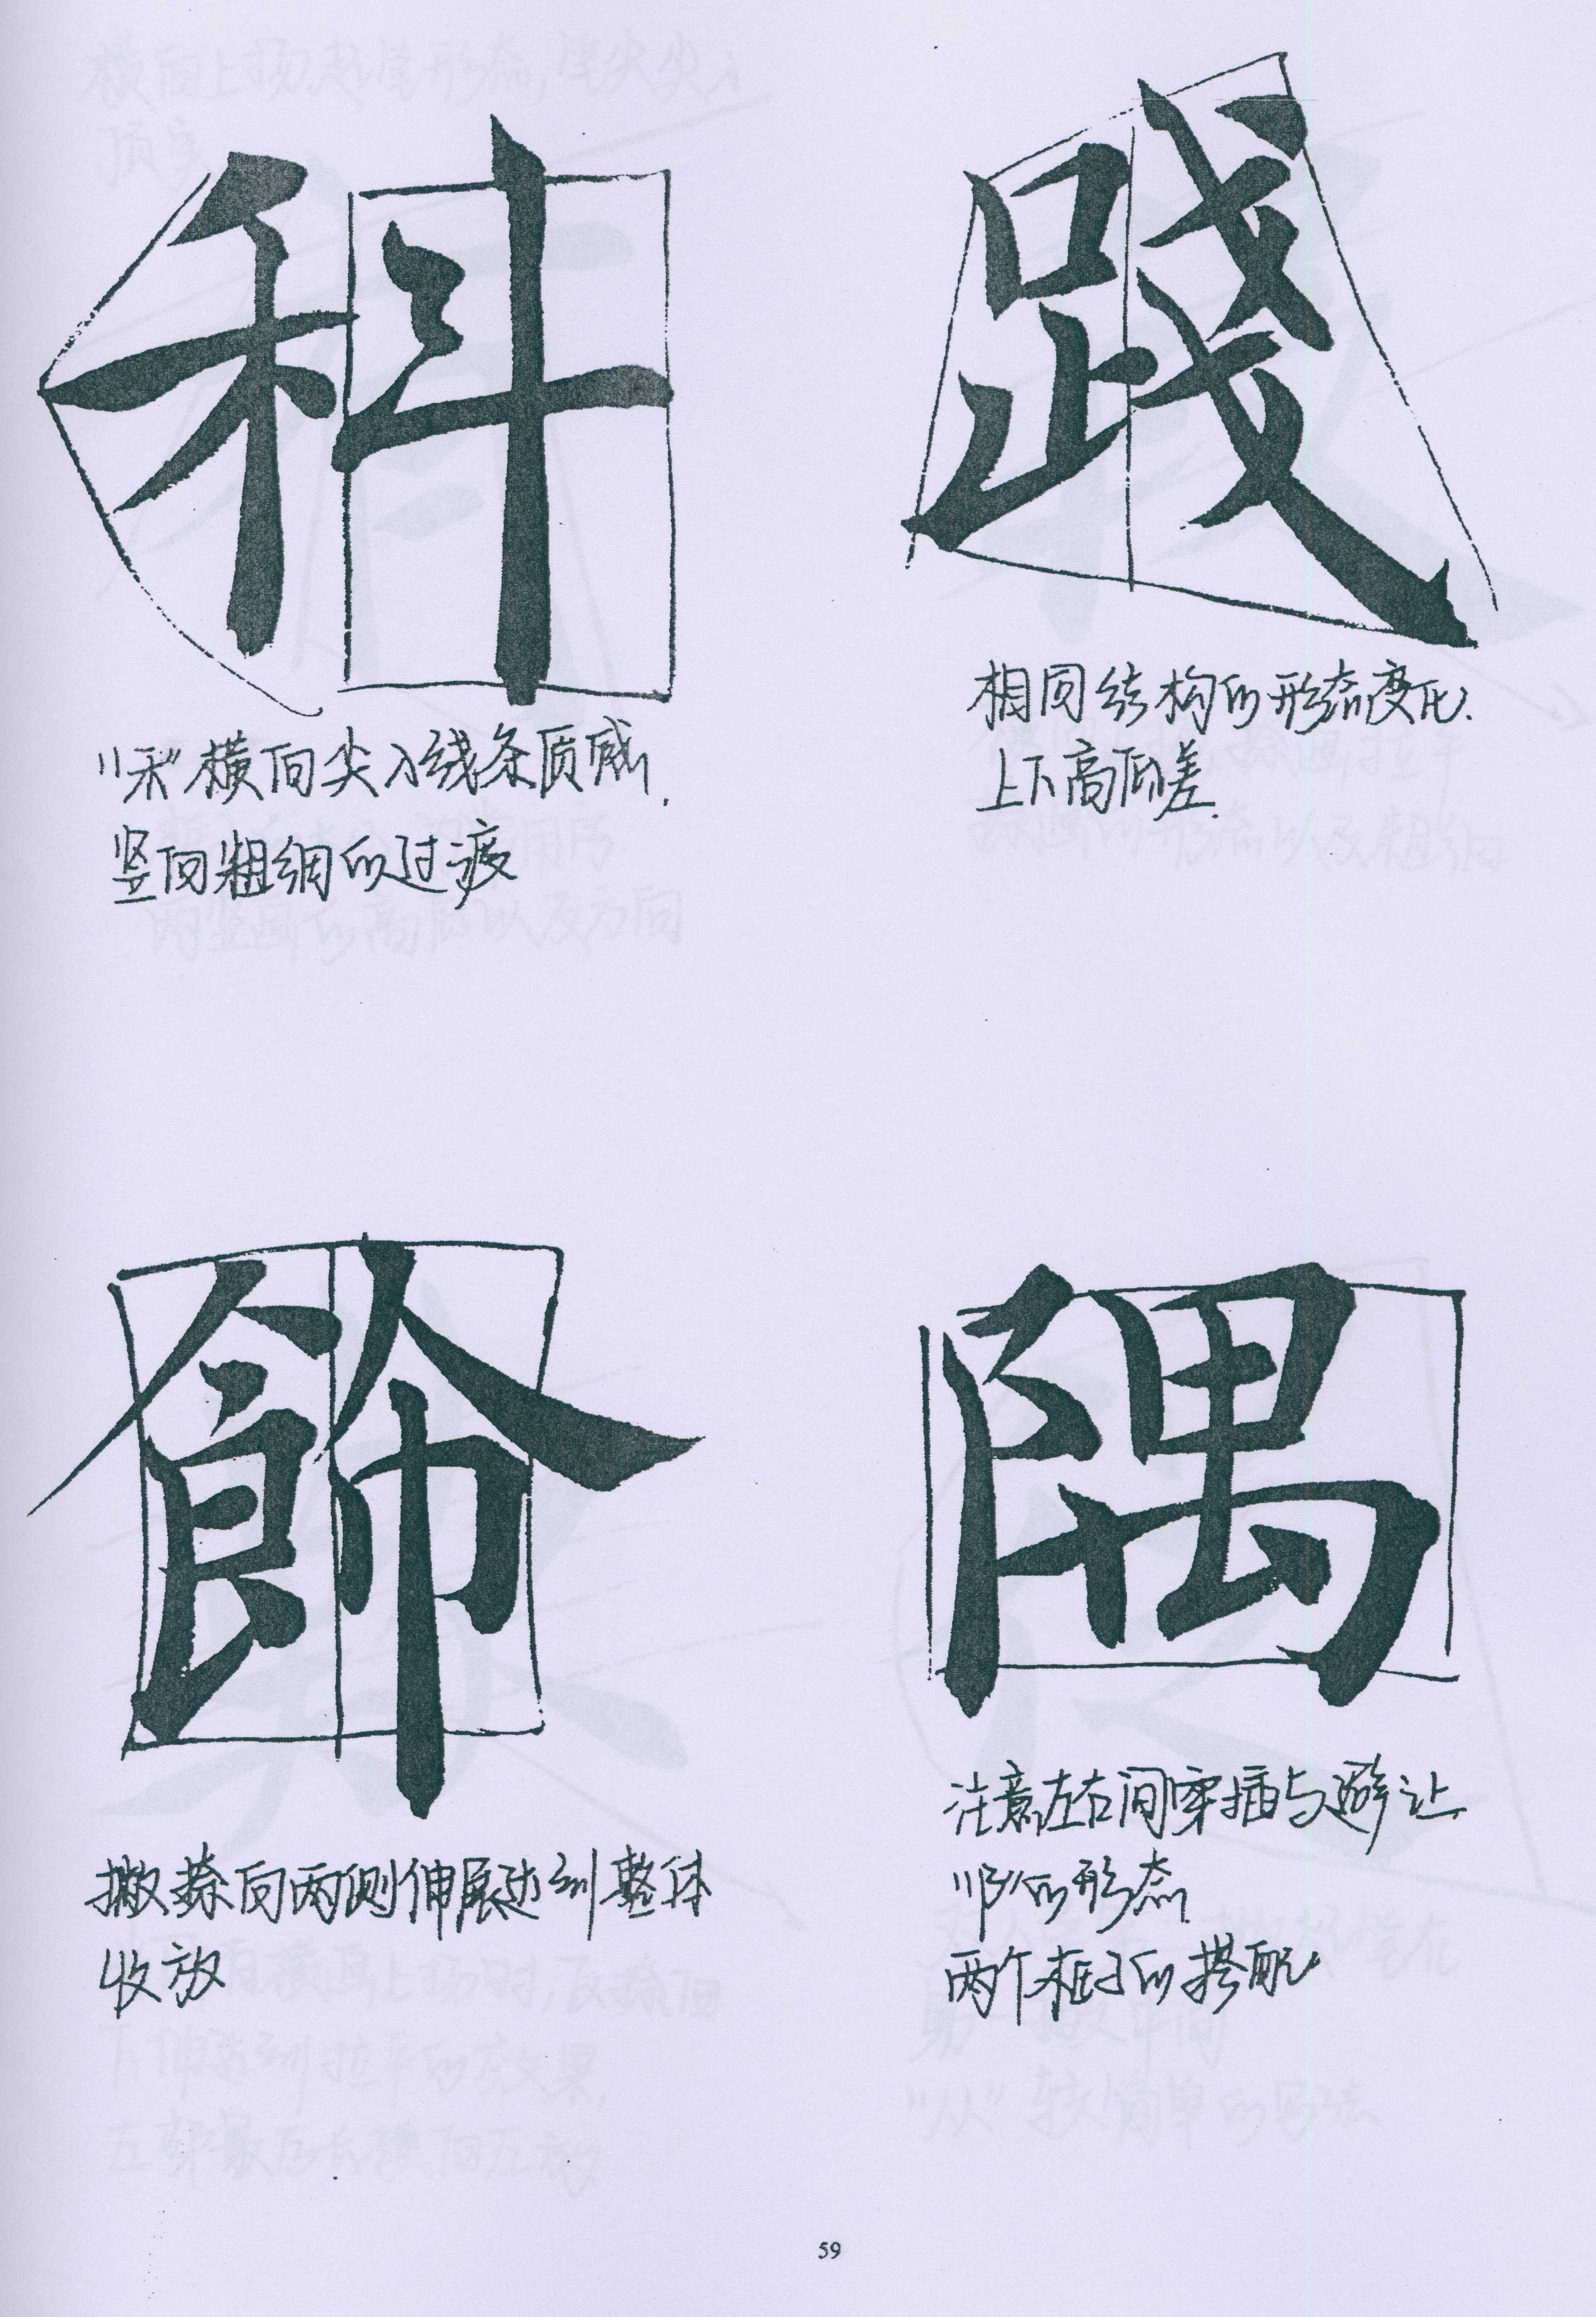 科
"禾"横向尖入线条质感.
竖向粗细的过渡
践
相同结构的形态变化.
上下高低差.
飾
撇捺向两侧伸展达到整体
收放
隅
注意左右间穿插与避让.
"阝"的形态.
两个框子的搭配
59